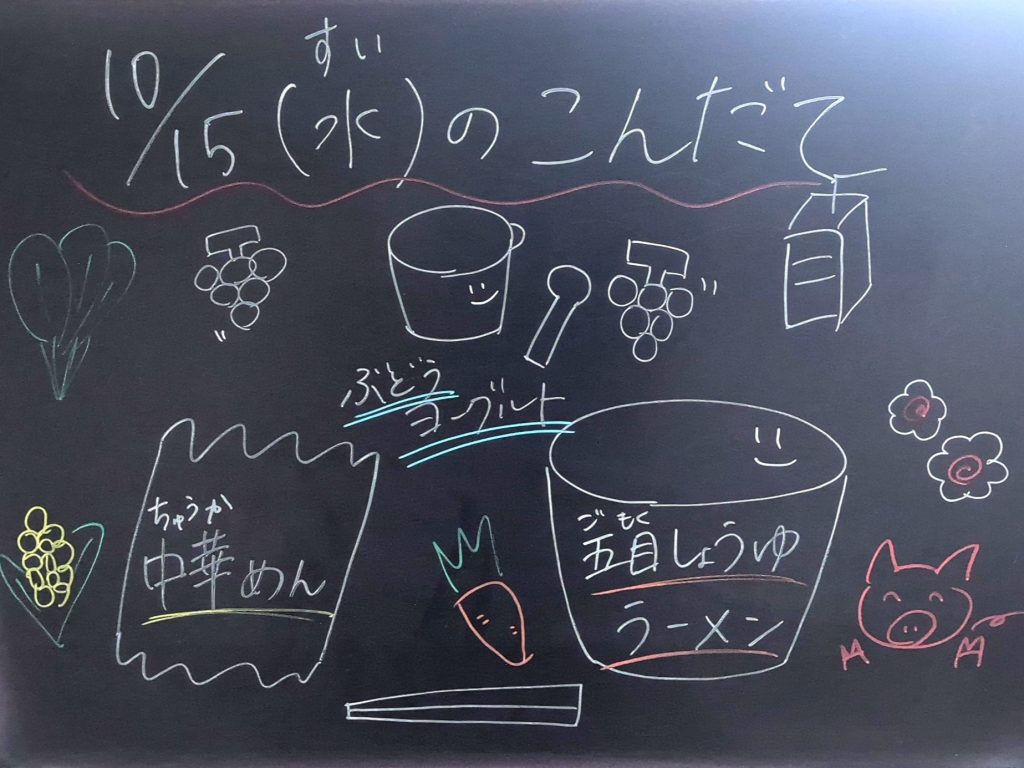 すい
10/15(水)のこんだて
ぶどう
ヨーグルト
ちゅうか
中華めん
ごもく
五目しょうゆ
ラーメン